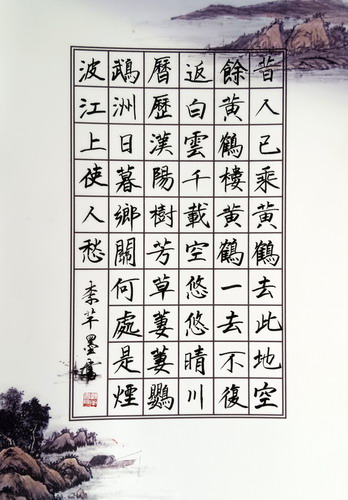 昔人已乘黃鶴去此地空
餘黃鶴樓黃鶴一去不復
返白雲千載空悠悠晴川
曆歷漢陽樹芳草萋萋鸚
鵡洲日暮鄉關何處是煙
波江上使人愁
李芊墨